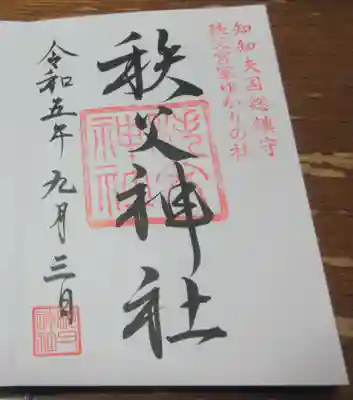 知知夫国総鎮守
秩父宮家ゆかりの社
秩父神社
令和五年九月三日